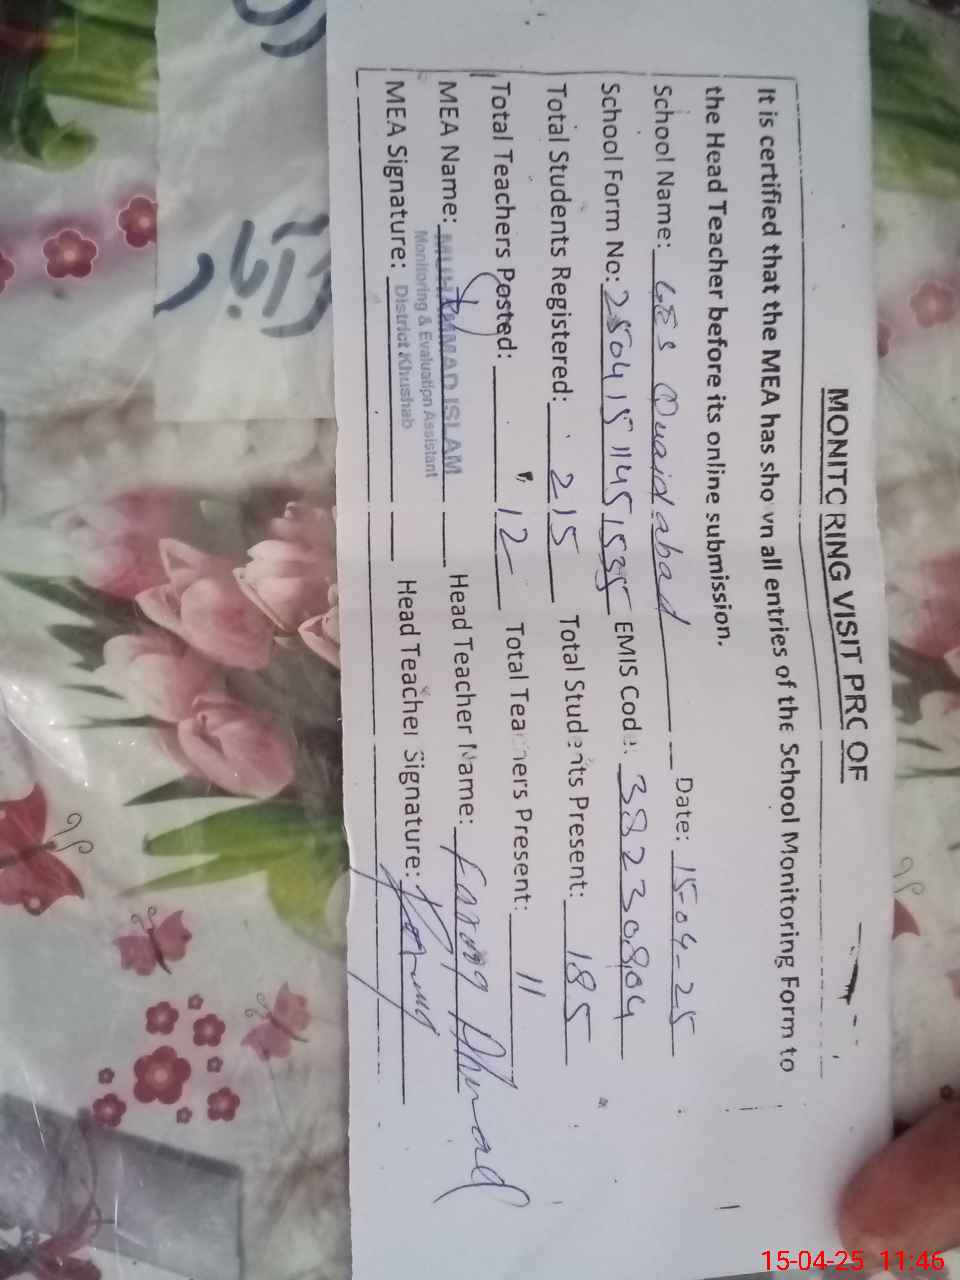 MONITORING VISIT PROOF
It is certified that the MEA has shown all entries of the School Monitoring Form to
the Head Teacher before its online submission.
School Name: GES Quaidabad Date: 15-04-25
School Form No: 250415 1145 1535 EMIS Code: 38230804
Total Students Registered: 215 Total Students Present: 185
Total Teachers Posted: 12 Total Teachers Present: 11
MEA Name: MUHAMMAD ISLAM Head Teacher Name: Farooq Ahmad
Monitoring & Evaluation Assistant
MEA Signature: District Khushab Head Teacher Signature:
15-04-25 11:46